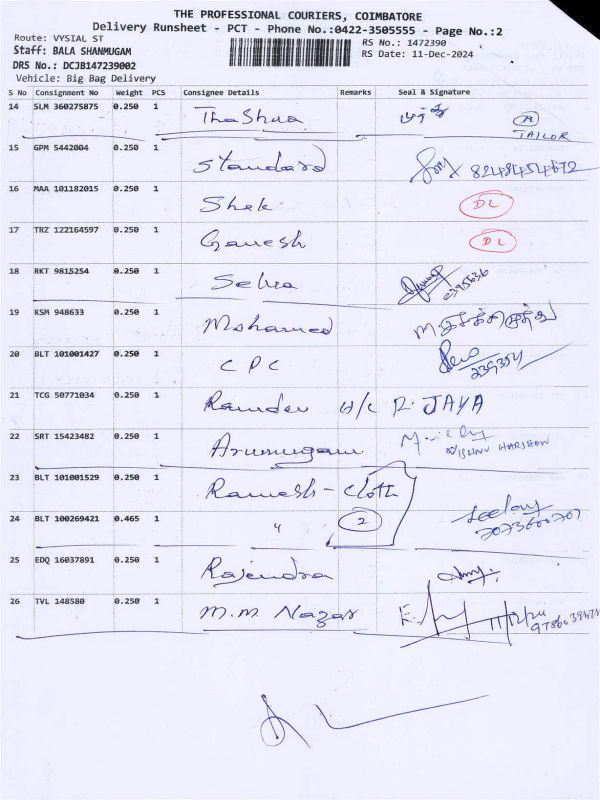 THE PROFESSIONAL COURIERS, COIMBATORE
Delivery Runsheet - PCT - Phone No.:0422-3505555 - Page No.:2
Route: VYSIAL ST RS No.: 1472390
Staff: BALA SHANMUGAM RS Date: 11-Dec-2024
DRS No.: DCJB147239002
Vehicle: Big Bag Delivery
S No Consignment No Weight PCS Consignee Details Remarks Seal & Signature
14 SLM 360275875 0.250 1 TAILOR
15 GPM 5442004 0.250 1 Standard 8248454672
16 MAA 101182015 0.250 1 Shek DL
17 TRZ 122164597 0.250 1 Ganesh DL
18 RKT 9815254 0.250 1 Selva
19 KSM 948633 0.250 1 Mohamed
20 BLT 101001427 0.250 1 CPC
21 TCG 50771034 0.250 1 Ramdev H/C R. JAYA
22 SRT 15423482 0.250 1 Arumugam VISHNU HARSHAN
23 BLT 101001529 0.250 1 Ramesh - Cloth
24 BLT 100269421 0.465 1 " 2
25 EDQ 16037891 0.250 1 Rajendra
26 TVL 148580 0.250 1 M.M Nazar 11/12/24